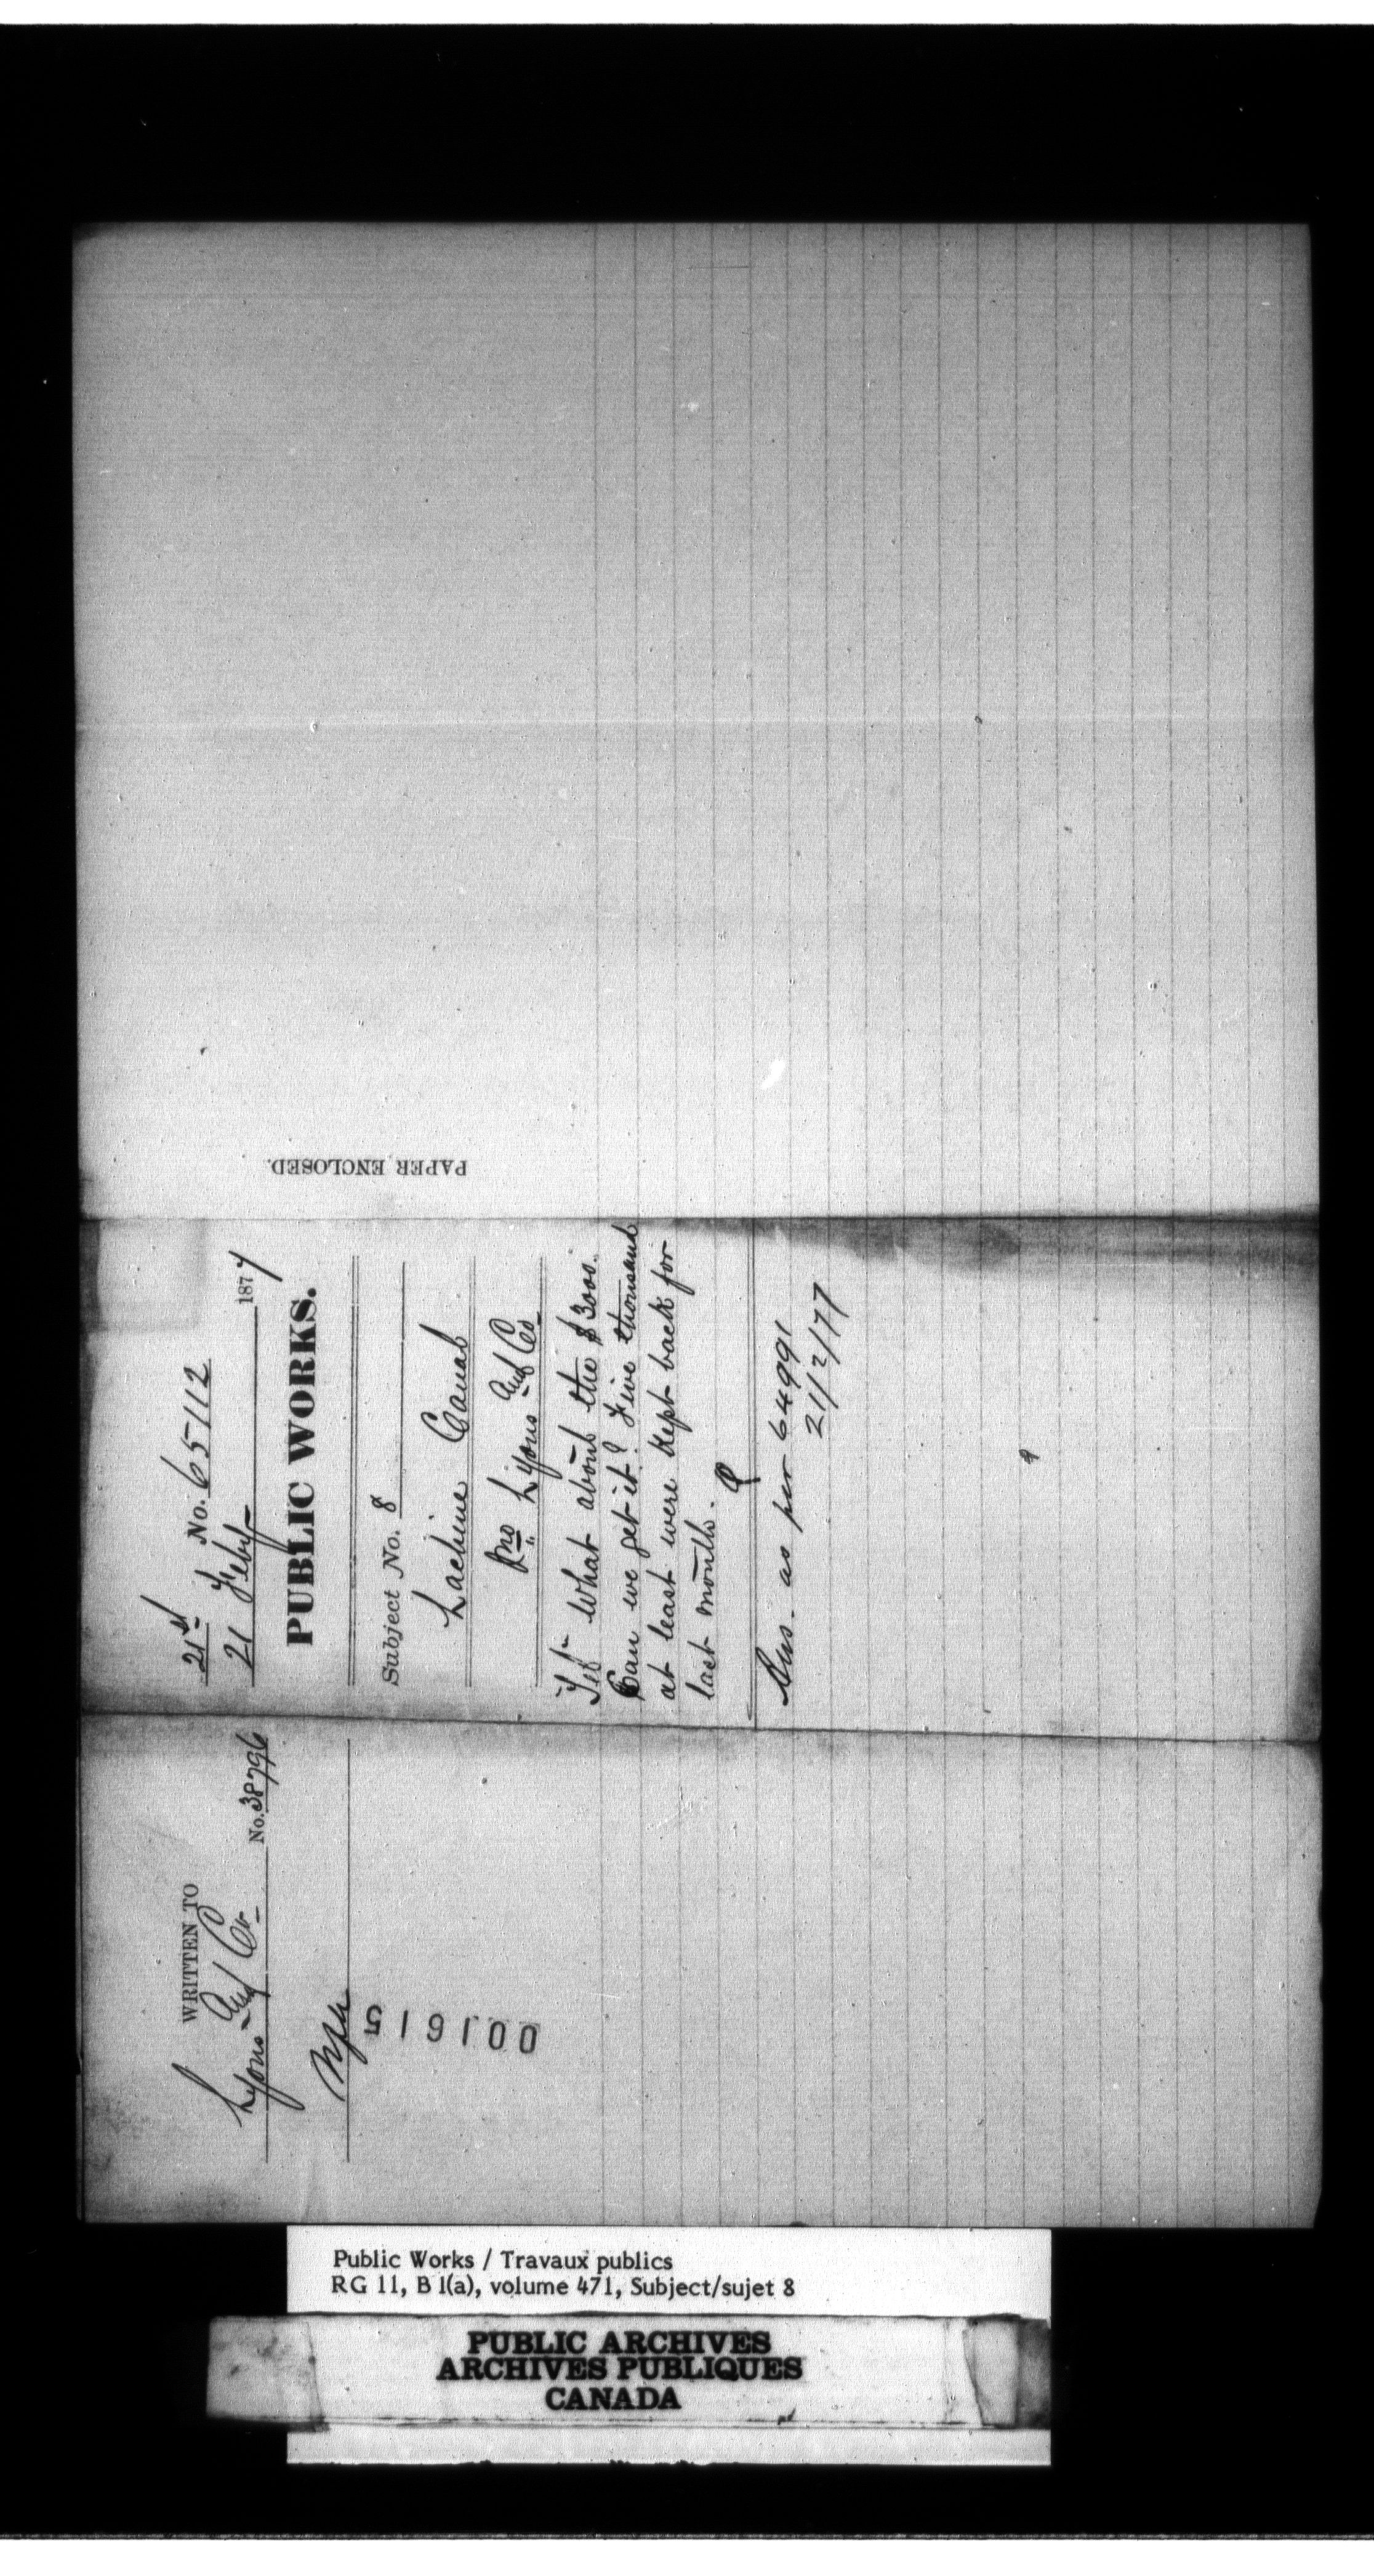 PAPER ENCLOSED.
21st No. 65112
21 Feby 1877
PUBLIC WORKS.
Subject No. 8
Lachine Canal
Lyons and Co
Tel- What about the $3000.
Can we get it? Five thousand
at least were kept back for
last month.
Ans. as per 64991
21/2/77
WRITTEN TO
Lyons and Co- No. 38796
001615
Public Works / Travaux publics
RG 11, B 1(a), volume 471, Subject/sujet 8
PUBLIC ARCHIVES
ARCHIVES PUBLIQUES
CANADA